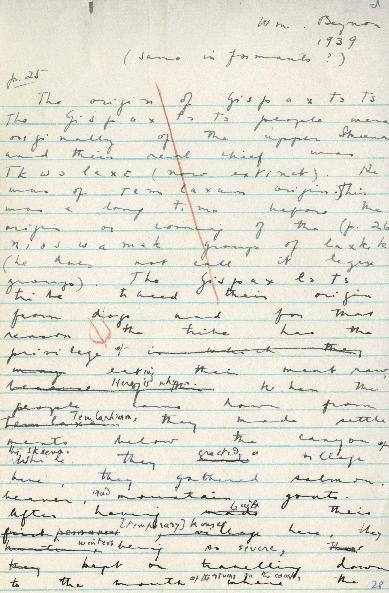 Wm. Beynon
1939
(same informants ?)
p. 25
The origin of Gispaxlots
The Gispaxlots people were
originally of the upper Skeena
and their real chief was
(now extinct). He
was of Temlaxam origin. This
was a long time before the
origin or coming of the (p. 26
groups of
(he does not call it legex
groups). The Gispaxlots
tribe traced their origin
from dogs and for that
reason the tribe has the
privilege of in which they
many eating their meat raw,
because Here is where. When the
people came down from
Temlaxam Temlaxham, they made settle
ments below the canyon of
the Skeena.
While they erected a village
here, they gathered salmon,
beaver and mountain goats.
After having made built their
first permanent [temporary] houses village here, the
winters being so severe, these
they kept on travelling down
to the mouth of the coast, where the
28